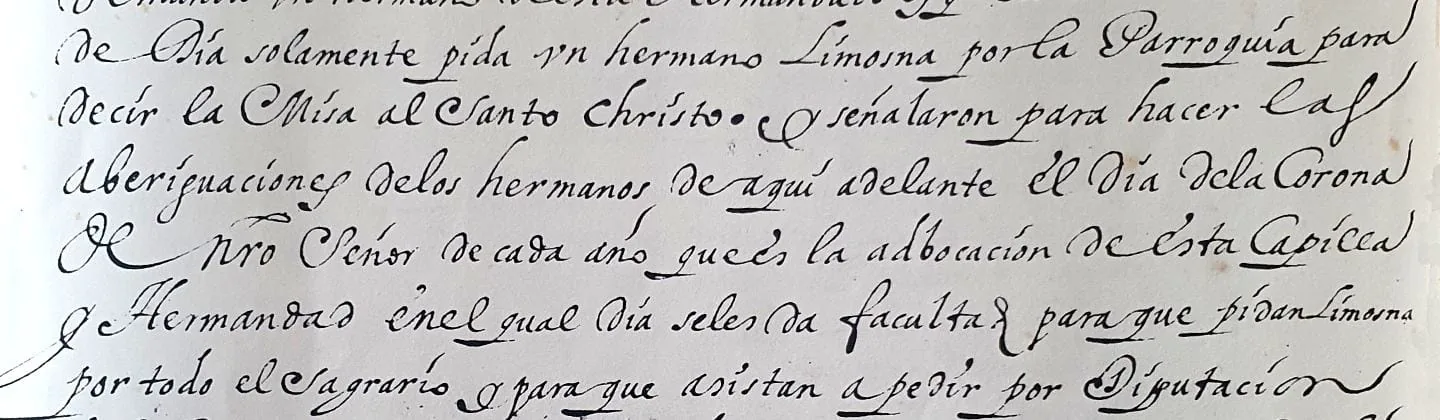 vn hermano de esta Hermandad
de Dia solamente pida vn hermano Limosna por la Parroquia para
decir la Misa al Santo Christo. y señalaron para hacer las
aberiguaciones delos hermanos de aqui adelante el Dia dela Corona
de nrõ Señor de cada año que es la adbocacion de esta Capilla
y Hermandad en el qual dia seles da facultad para que pidan Limosna
por todo el Sagrario y para que asistan a pedir por Diputacion